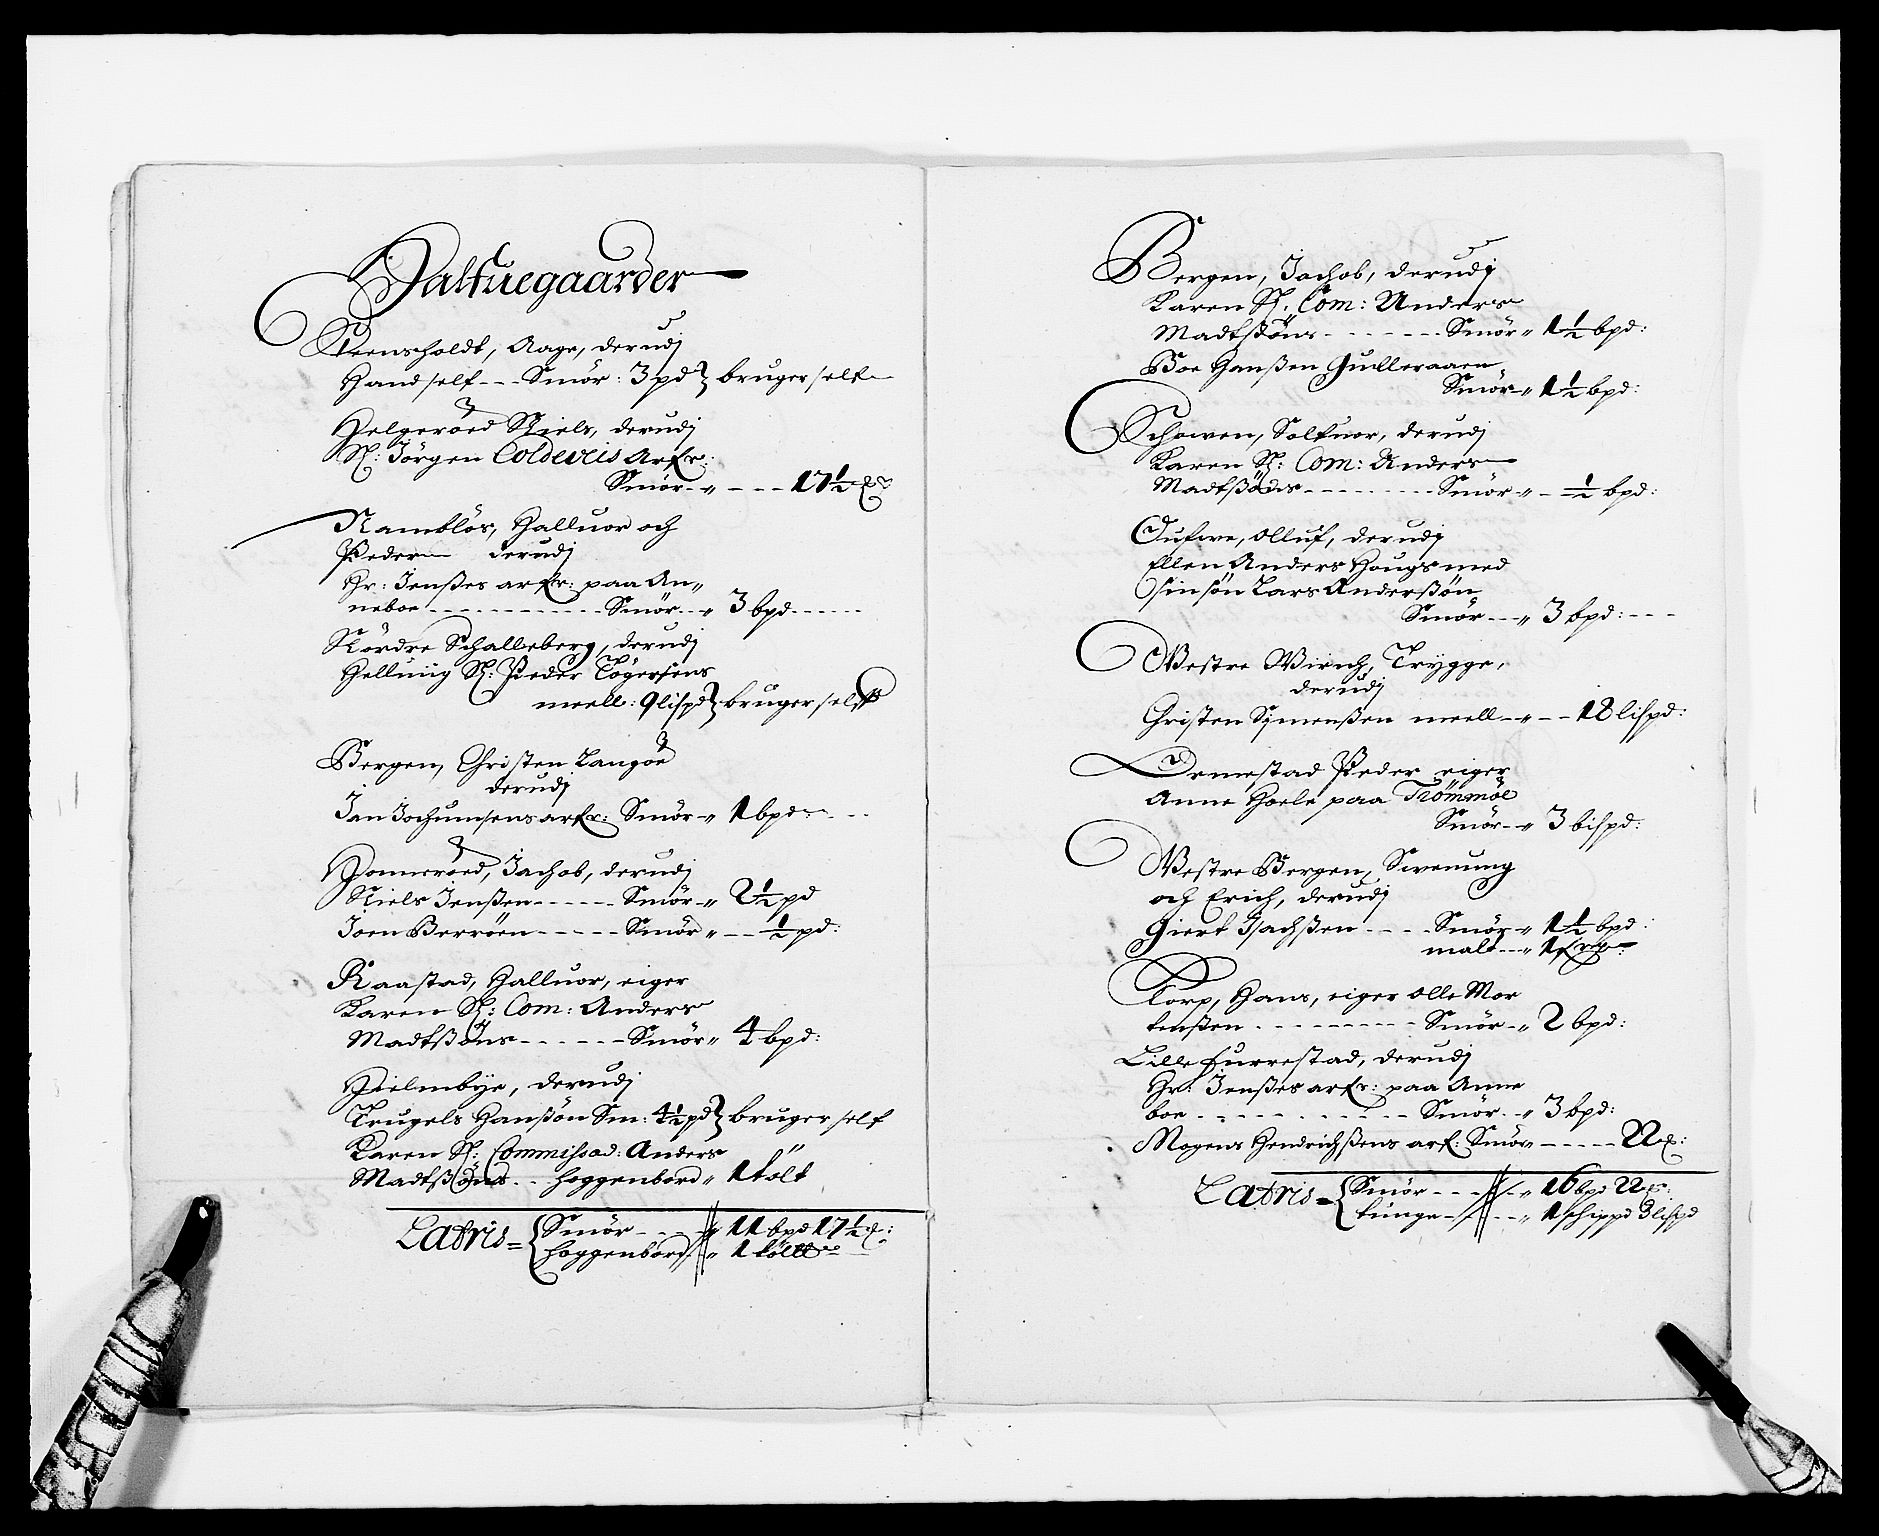 Halfuegaarder
Steensholdt, Aage, derudj
Hand self --- Smör: 3 pd } bruger self
Helgeröed Niels, derudj
Sl: Jörgen Coldeviis Arfr:
Smör " --- 17½
Ramblös, Halluor och
Peder derudj
Hr: Jenßes arfr: paa An"
neboe --- Smör " 3 bpd
Nördre Schalleberg, derudj
Helluig Sl: Peder Tögersens
meell: 9 lispd } bruger self
Bergen, Christen Langöe
derudj
Jan Jochumsens arfr: Smör " 1 bpd:
Jonneröed, Jachob, derudj
Niels Jenßen --- Smör " 2½ pd
Joen Berröen --- Smör " -- ½ pd:
Raastad, Halluor, eiger
Karen Sl: Com: Anders
Madtßöns --- Smör " 4 bpd:
Hielmbye, derudj
Trugels Hanßön Sm: 4½ pd } bruger self
Karen Sl: Commissad: Anders
Madtßöns -- hoggenbord " 1 tölt
Latris = { Smör --- " 11 bpd 17½
hoggenbord " 1 tölt
Bergen, Jachob, derudj
Karen Sl: Com: Anders
Madtßöns --- Smör " 1½ bpd:
Boe Hanßen Gulleraaen
Smör " 1½ bpd:
Schowen, Solfuor, derudj
Karen Sl: Com: Anders
Madtßöns --- Smör " -- ½ bpd:
Oufwe, Olluf, derudj
Ellen Anders Hougs med
sin sön Lars Anderßön
Smör -- " 3 bpd:
Westre Wirich, Trygge,
derudj
Christen Simenßen meell -- " -- 18 lispd:
Ormestad Peder eiger
Anne Hoele paa Trömmöe
Smör -- " 3 bispd:
Westre Bergen, Swenung
och Erich, derudj
Giert Isachßen --- Smör " 1½ bpd:
malt -- " 1
Torp, Hans, eiger Olle Mor
tenßen --- Smör -- " 2 bpd:
Lille Furrestad, derudj
Hr: Jenßes arfr: paa Anne
boe --- Smör -- " 3 bpd:
Mogens Hendrichßens arf: Smör --- 22
Latris = { Smör --- " 16 bpd 22
tunge --- " 1 schippd 3 lispd